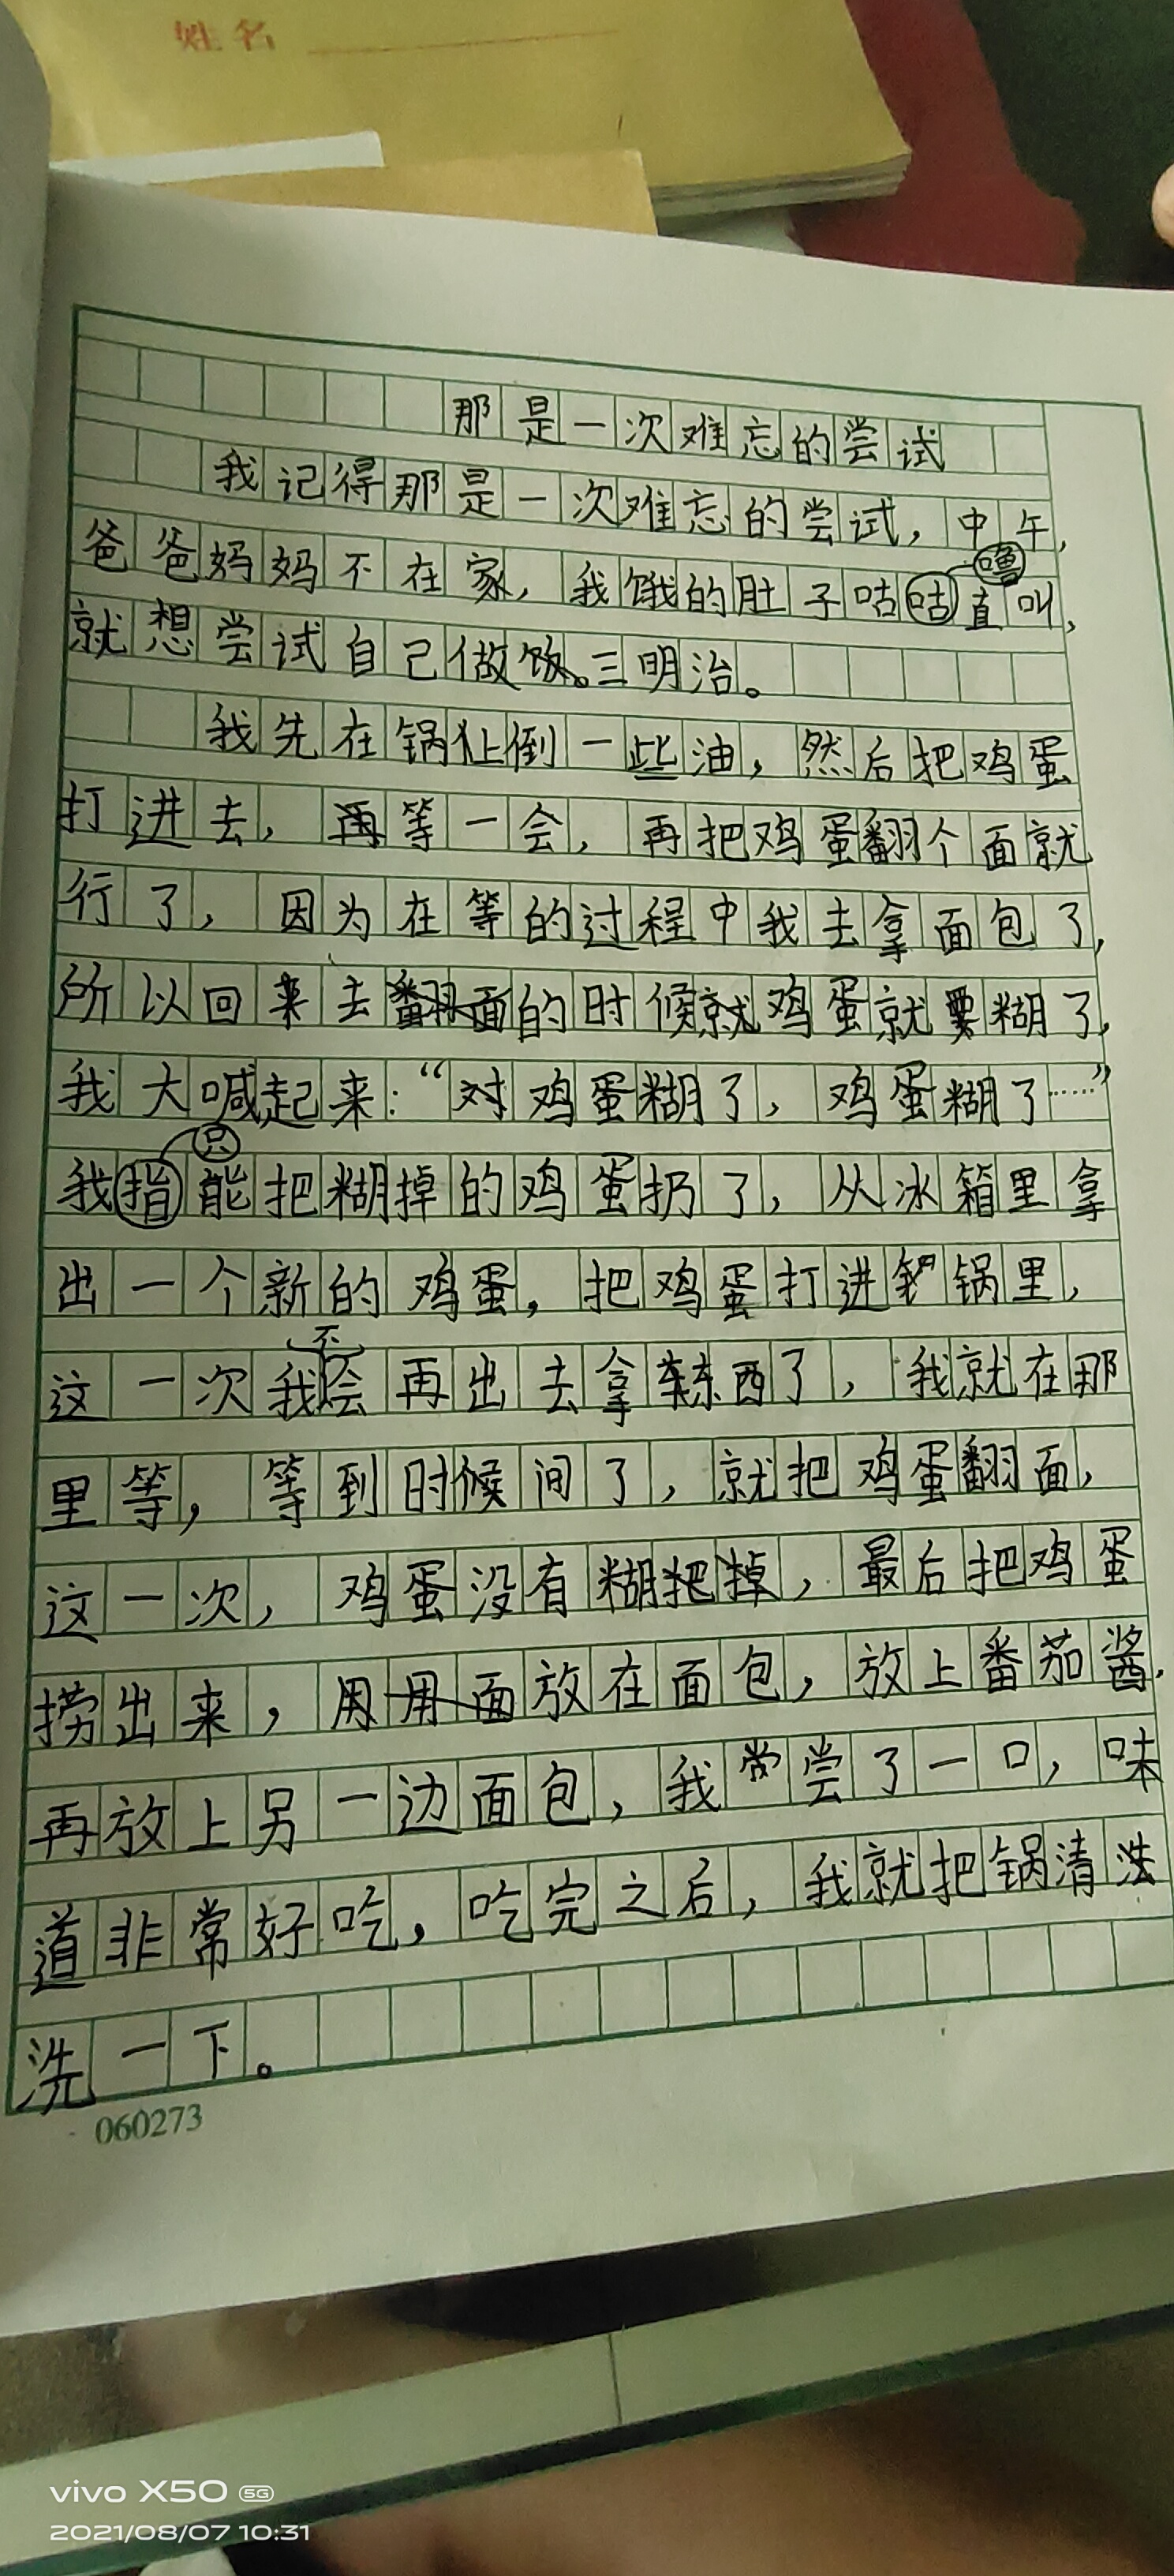 姓名
那是一次难忘的尝试
我记得那是一次难忘的尝试，中午，
爸爸妈妈不在家，我饿的肚子咕噜直叫，
就想尝试自己做三明治。
我先在锅里倒一些油，然后把鸡蛋
打进去，再等一会，再把鸡蛋翻个面就
行了，因为在等的过程中我去拿面包了，
所以回来去翻面的时候鸡蛋就要糊了，
我大喊起来：“鸡蛋糊了，鸡蛋糊了……”
我只能把糊掉的鸡蛋扔了，从冰箱里拿
出一个新的鸡蛋，把鸡蛋打进锅里，
这一次我不会再出去拿东西了，我就在那
里等，等到时间了，就把鸡蛋翻面，
这一次，鸡蛋没有糊掉，最后把鸡蛋
捞出来，放在面包，放上番茄酱，
再放上另一边面包，我尝了一口，味
道非常好吃，吃完之后，我就把锅清洗
洗一下。
060273
vivo X50 5G
2021/08/07 10:31